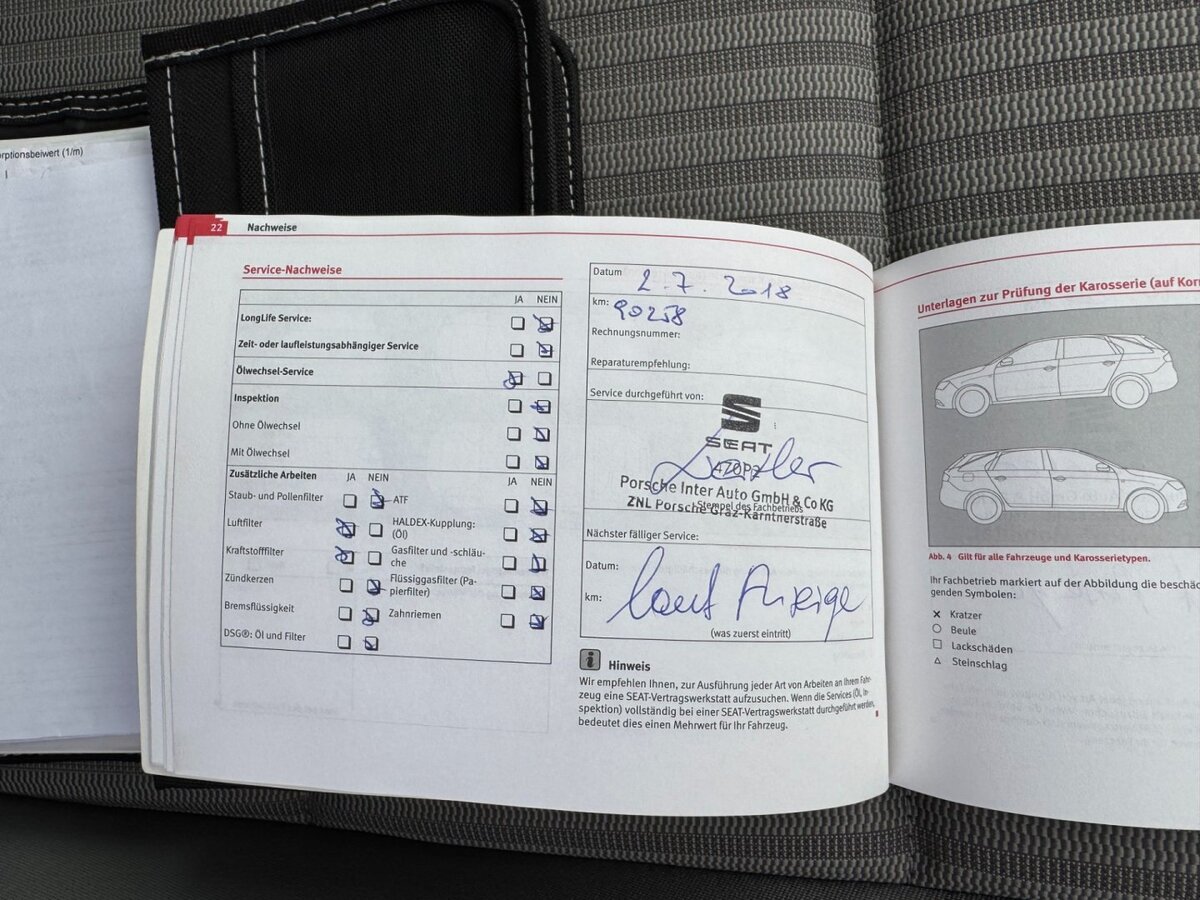 orptionsbeiwert (1/m)
22 Nachweise
Service-Nachweise
JA NEIN
LongLife Service:
Zeit- oder laufleistungsabhängiger Service
Ölwechsel-Service
Inspektion
Ohne Ölwechsel
Mit Ölwechsel
Zusätzliche Arbeiten JA NEIN JA NEIN
Staub- und Pollenfilter ATF
Luftfilter HALDEX-Kupplung:
(Öl)
Kraftstofffilter Gasfilter und -schläu-
che
Zündkerzen Flüssiggasfilter (Pa-
pierfilter)
Bremsflüssigkeit Zahnriemen
DSG®: Öl und Filter
Datum 2.7.2018
km: 90258
Rechnungsnummer:
Reparaturempfehlung:
Service durchgeführt von:
SEAT
Porsche Inter Auto GmbH & Co KG
Stempel des Fachbetriebs
ZNL Porsche Graz-Kärntnerstraße
Nächster fälliger Service:
Datum:
km: laut Anzeige
(was zuerst eintritt)
i Hinweis
Wir empfehlen Ihnen, zur Ausführung jeder Art von Arbeiten an Ihrem Fahr-
zeug eine SEAT-Vertragswerkstatt aufzusuchen. Wenn die Services (Öl, In-
spektion) vollständig bei einer SEAT-Vertragswerkstatt durchgeführt werden,
bedeutet dies einen Mehrwert für Ihr Fahrzeug.
Unterlagen zur Prüfung der Karosserie (auf Korr
Abb. 4 Gilt für alle Fahrzeuge und Karosserietypen.
Ihr Fachbetrieb markiert auf der Abbildung die beschä
genden Symbolen:
Kratzer
Beule
Lackschäden
Steinschlag